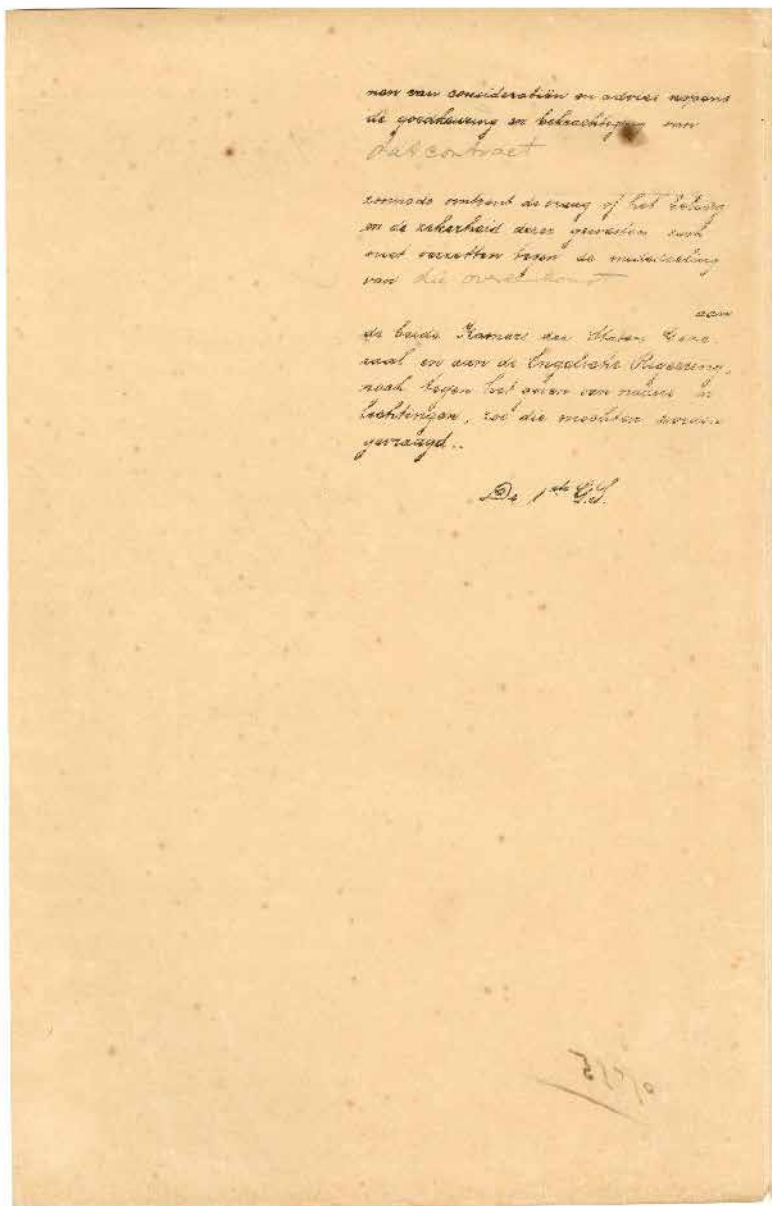 nen van consideratiën en advies nopens
de goedkeuring en bekrachtiging van
dat contract
zoomede omtrent de vraag of het belang
en de zekerheid dezer gewesten zich
niet verzetten tegen de mededeeling
van die overeenkomst
aan
de beide Kamers der Staten Gene
raal en aan de Engelsche Regeering,
noch tegen het geven van nadere in
lichtingen, zoo die mochten worden
gevraagd..
De 1ste G.S.